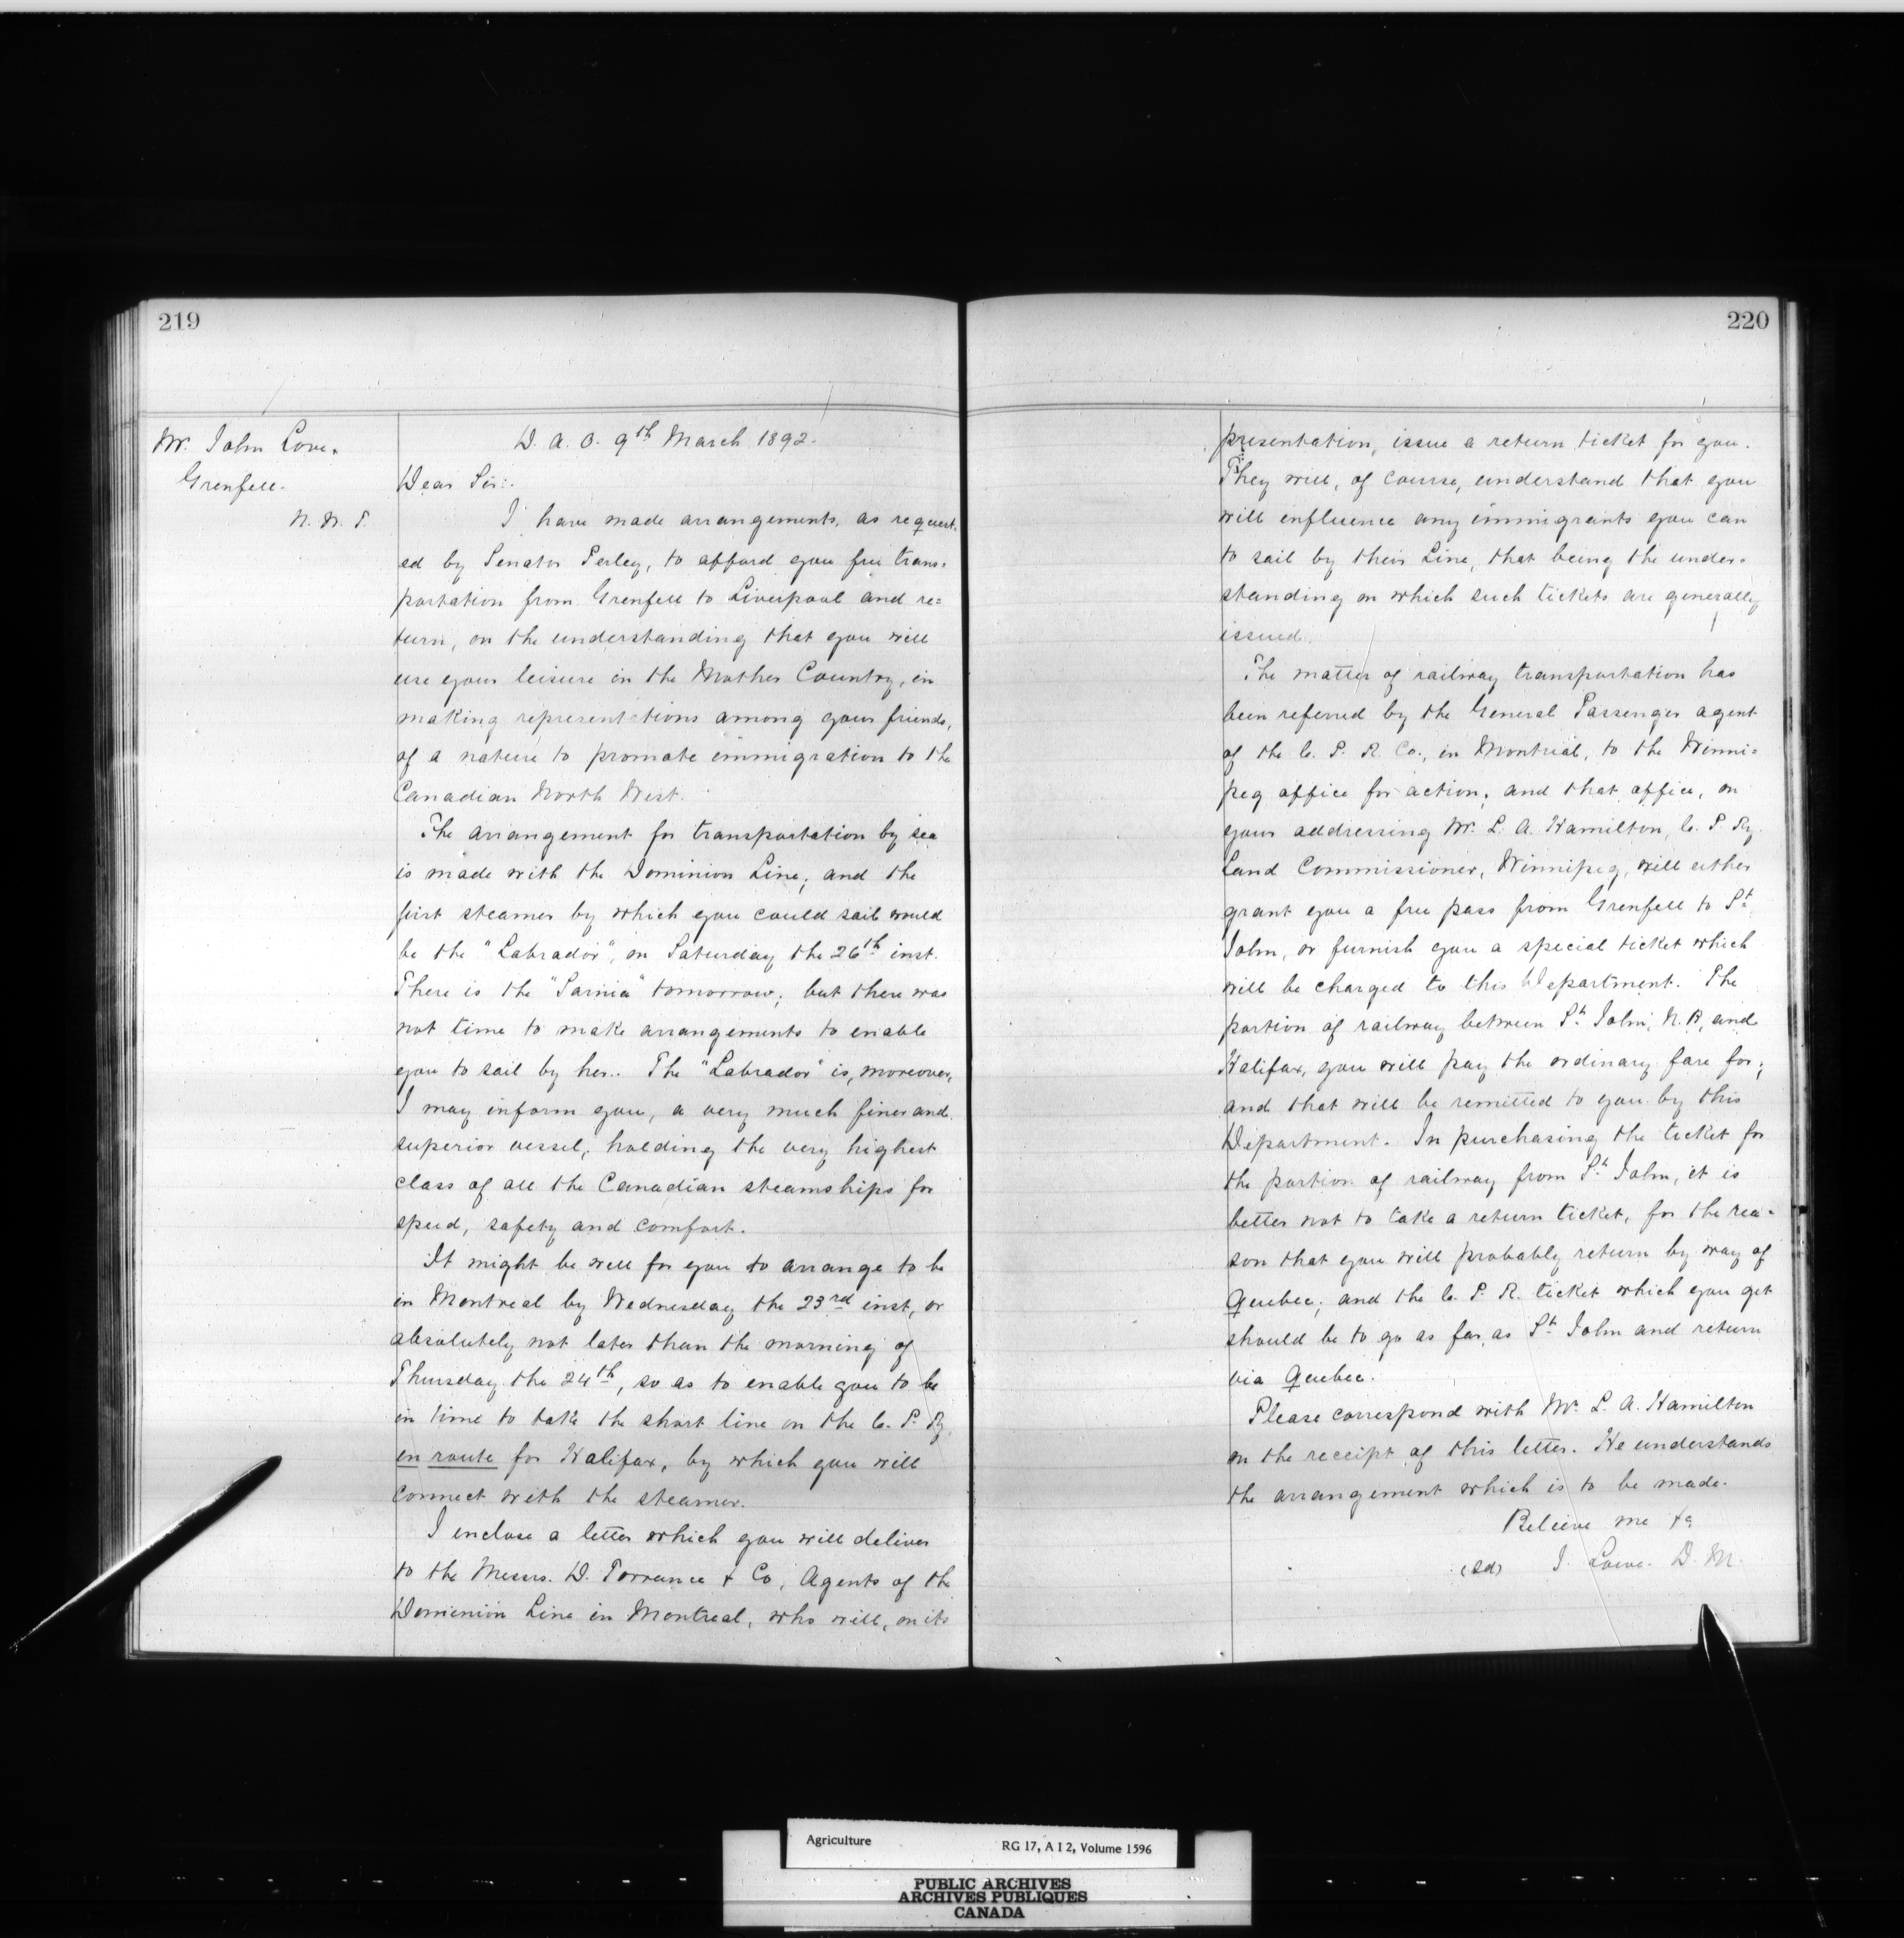 219
Mr. John Love.
Grenfell.
N. W. T.
D. A. O. 9th March 1892.
Dear Sir:-
I have made arrangements, as request-
ed by Senator Perley, to afford you free trans=
portation from Grenfell to Liverpool and re=
turn, on the understanding that you will
use your leisure in the Mother Country, in
making representations among your friends,
of a nature to promote immigration to the
Canadian North West.
The arrangement for transportation by sea
is made with the Dominion Line; and the
first steamer by which you could sail would
be the "Labrador", on Saturday the 26th inst.
There is the "Sarnia" tomorrow; but there was
not time to make arrangements to enable
you to sail by her. The "Labrador" is, moreover,
I may inform you, a very much finer and
superior vessel, holding the very highest
class of all the Canadian steamships for
speed, safety and comfort.
It might be well for you to arrange to be
in Montreal by Wednesday the 23rd inst, or
absolutely not later than the morning of
Thursday the 24th, so as to enable you to be
in time to take the short line on the C. P. Ry.
en route for Halifax, by which you will
connect with the steamer.
I enclose a letter which you will deliver
to the Messrs. D. Torrance & Co, Agents of the
Dominion Line in Montreal, who will, on its
220
presentation, issue a return ticket for you.
They will, of course, understand that you
will influence any immigrants you can
to sail by their Line, that being the under-
standing on which such tickets are generally
issued.
The matter of railway transportation has
been referred by the General Passenger agent
of the C. P. R. Co., in Montreal, to the Winni=
peg office for action; and that office, on
your addressing Mr. L. A. Hamilton, C. P. Ry.
Land Commissioner, Winnipeg, will either
grant you a free pass from Grenfell to St.
John, or furnish you a special ticket which
will be charged to this Department. The
portion of railway between St. John, N. B, and
Halifax, you will pay the ordinary fare for;
and that will be remitted to you by this
Department. In purchasing the ticket for
the portion of railway from St. John, it is
better not to take a return ticket, for the rea-
son that you will probably return by way of
Quebec; and the C. P. R. ticket which you get
should be to go as far as St. John and return
via Quebec.
Please correspond with Mr. L. A. Hamilton
on the receipt of this letter. He understands
the arrangement which is to be made.
Believe me &c
(Sd) J. Lowe. D. M.
Agriculture RG 17, A I 2, Volume 1596
PUBLIC ARCHIVES
ARCHIVES PUBLIQUES
CANADA